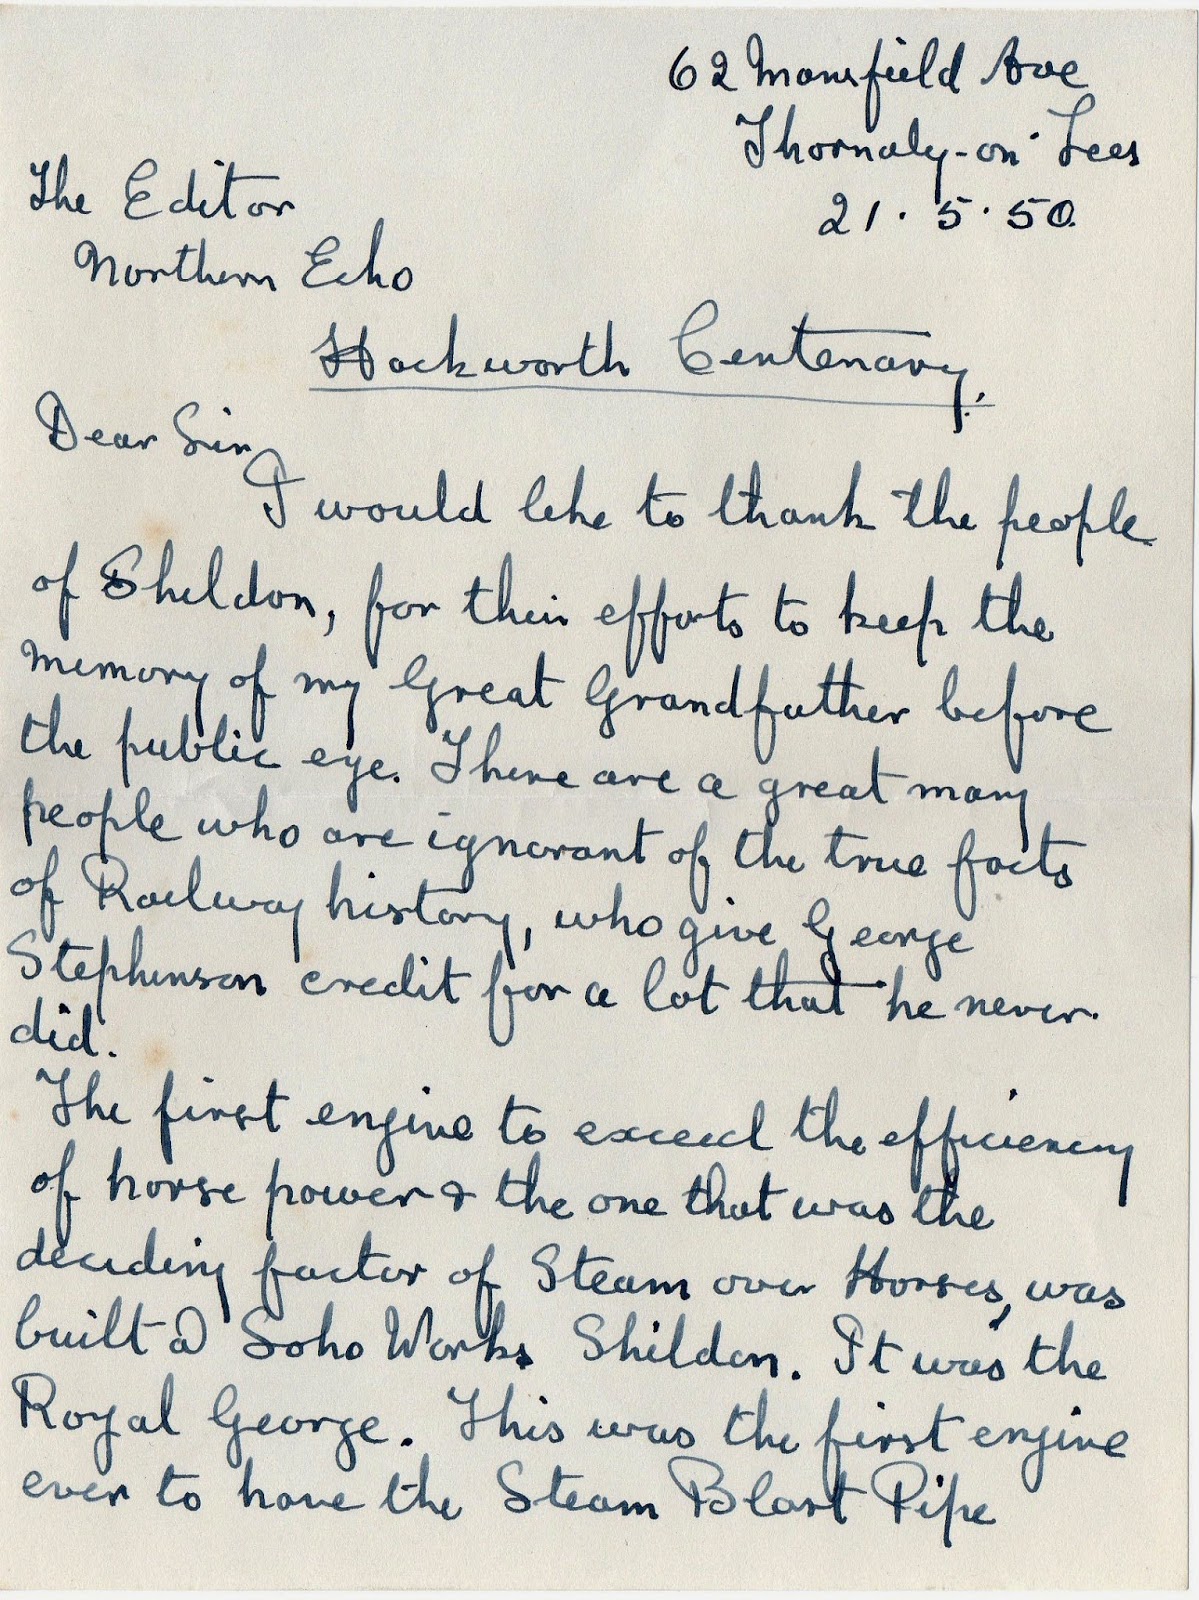 62 Mansfield Ave
Thornaly-on-Tees
21.5.50.
The Editor
Northern Echo
Hackworth Centenary.
Dear Sir,
I would like to thank the people
of Sheldon, for their efforts to keep the
memory of my Great Grandfather before
the public eye. There are a great many
people who are ignorant of the true facts
of Railway history, who give George
Stephenson credit for a lot that he never
did.
The first engine to exceed the efficiency
of horse power & the one that was the
deciding factor of Steam over Horses, was
built @ Soho Works Shildon. It was the
Royal George. This was the first engine
ever to have the Steam Blast Pipe